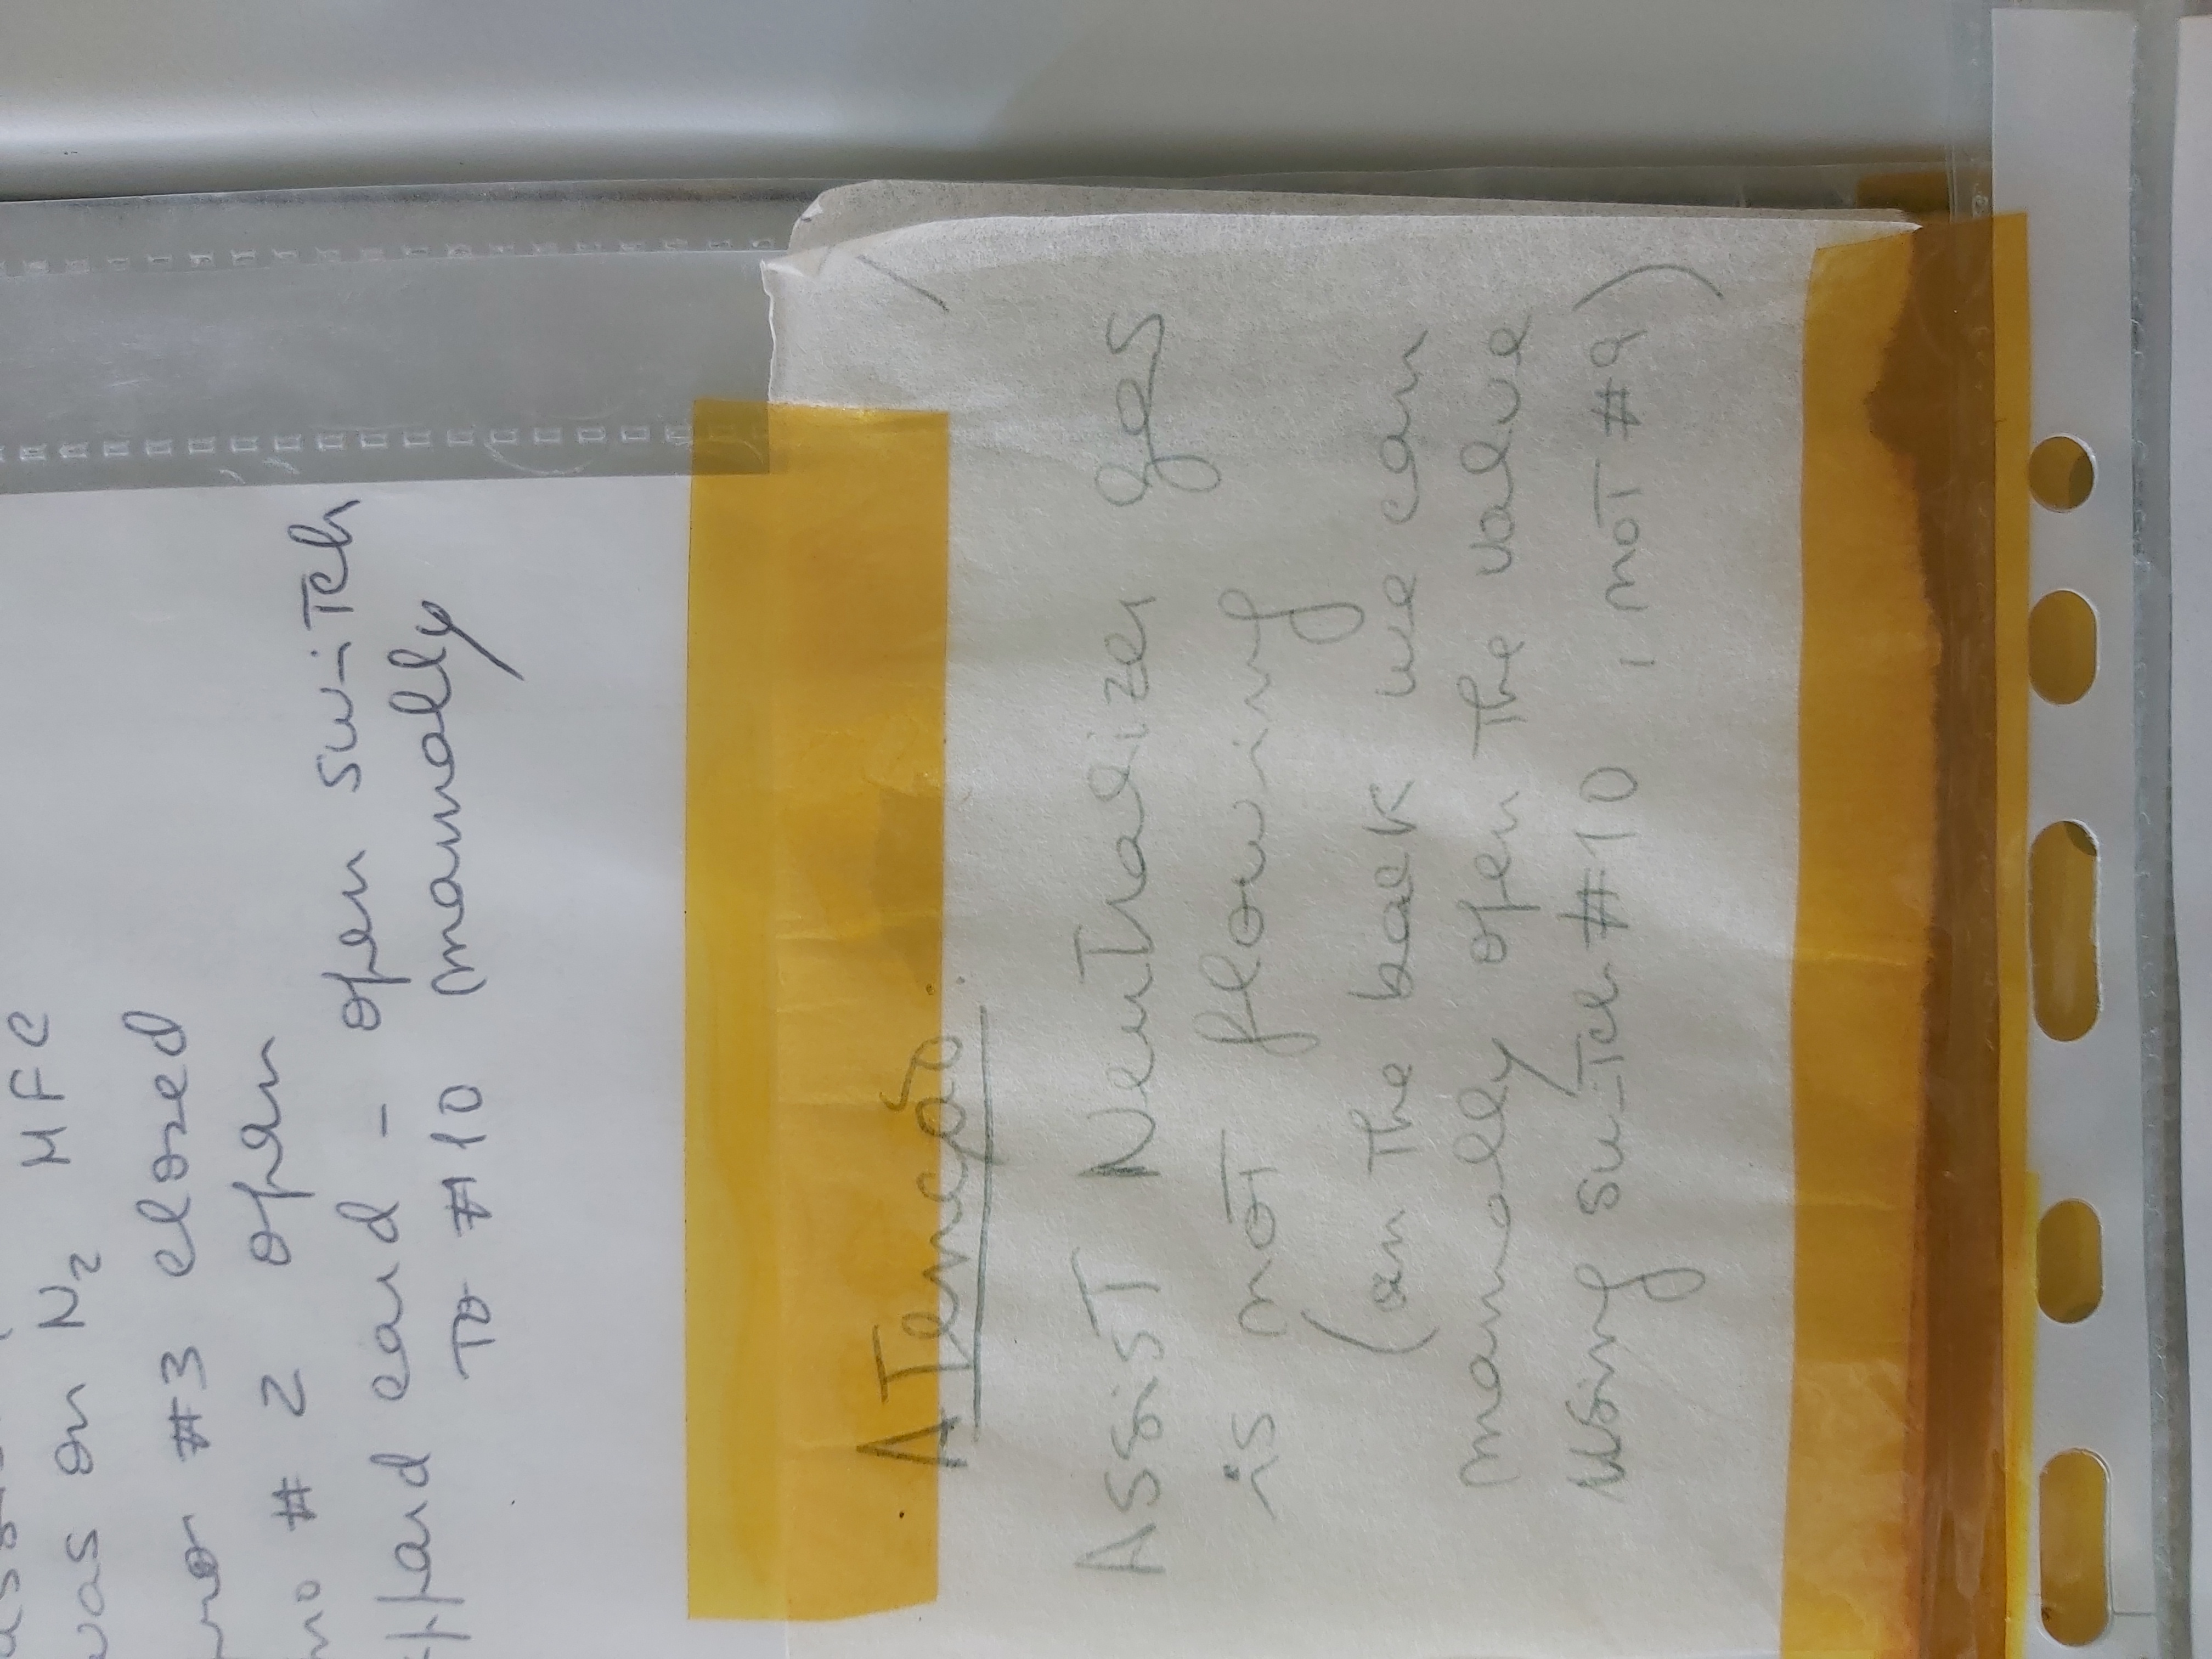 was on N₂ MFC
#3 closed
# 2 open
card - open switch
To #10 manually
ATenção:
AssisT NeuTralizer gas
is noT flowing
(on The back we can
manually open The valve
using swiTch #10 , noT #9)